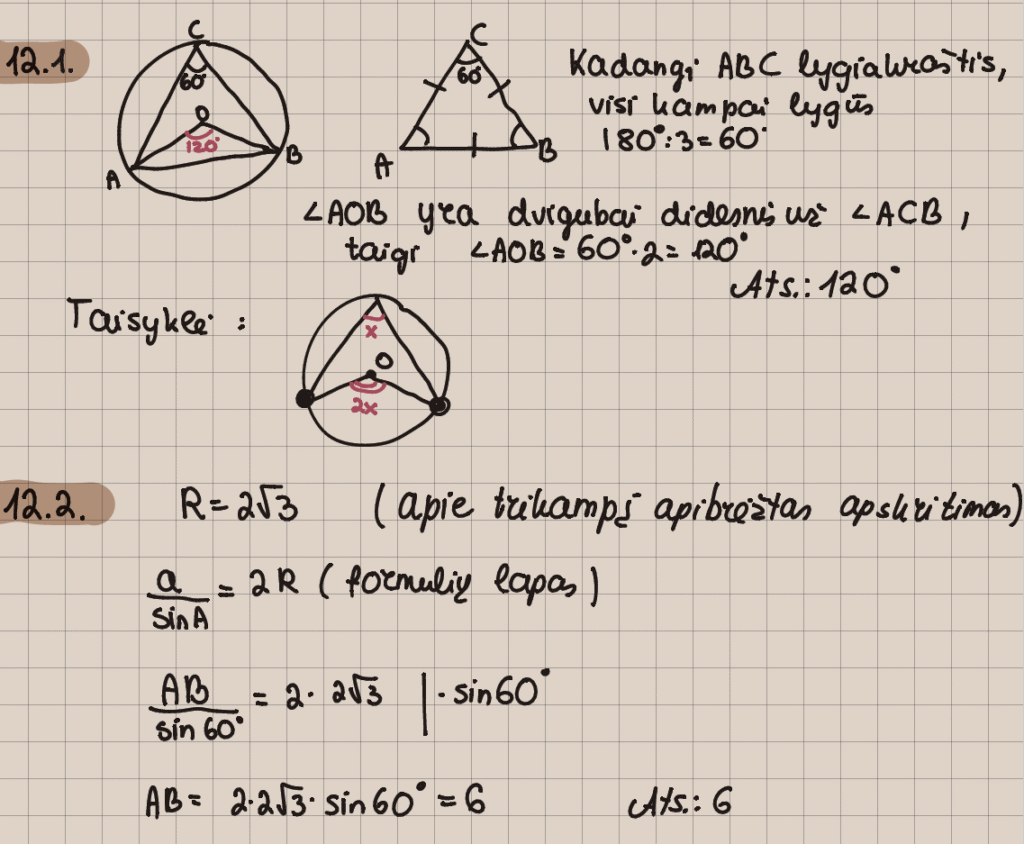 12.1.
C
60°
O
120°
A
B
C
60°
A
B
Kadangi ABC lygiakraštis,
visi kampai lygūs
180°:3=60°
∠AOB yra dvigubai didesnis už ∠ACB,
taigi ∠AOB=60°·2=120°
Ats.: 120°
Taisyklė:
x
O
2x
12.2. R=2√3 (apie trikampį apibrėžtas apskritimas)
a/sinA = 2R (formulių lapas)
AB/sin60° = 2·2√3 |·sin60°
AB= 2·2√3·sin60°=6 Ats.: 6